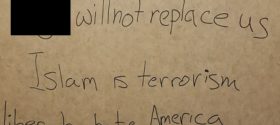 willnot replace us
Islam is terrorism
America